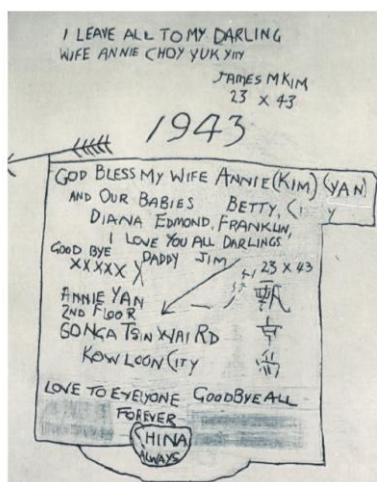 I LEAVE ALL TO MY DARLING
WIFE ANNIE CHOY YUK YIN
JAMES M KIM
23 X 43
1943
GOD BLESS MY WIFE ANNIE (KIM) (YAN)
AND OUR BABIES BETTY,
DIANA EDMOND, FRANKLIN,
I LOVE YOU ALL DARLINGS
GOOD BYE DADDY JIM
XXXXX X 23 X 43
ANNIE YAN
2ND FLOOR
TSIN WAI RD
KOWLOON CITY
LOVE TO EVELYONE GOODBYE ALL
FOREVER
HINA
ALWAYS